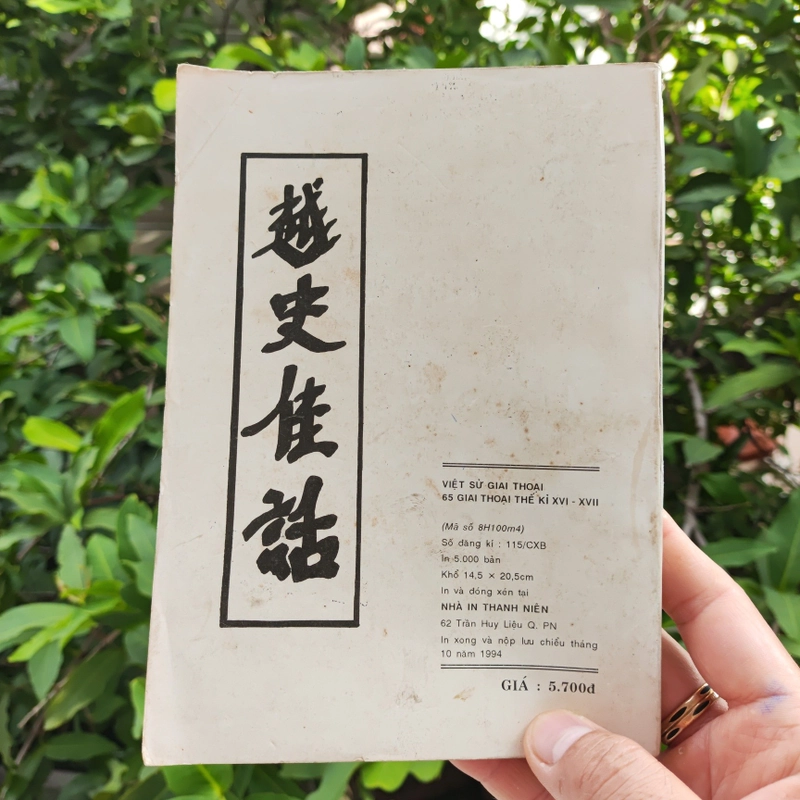 越史佳話
VIỆT SỬ GIAI THOẠI
65 GIAI THOẠI THẾ KỈ XVI - XVII
(Mã số 8H100m4)
Số đăng kí : 115/CXB
In 5.000 bản
Khổ 14,5 × 20,5cm
In và đóng xén tại
NHÀ IN THANH NIÊN
62 Trần Huy Liệu Q. PN
In xong và nộp lưu chiểu tháng
10 năm 1994
GIÁ : 5.700đ